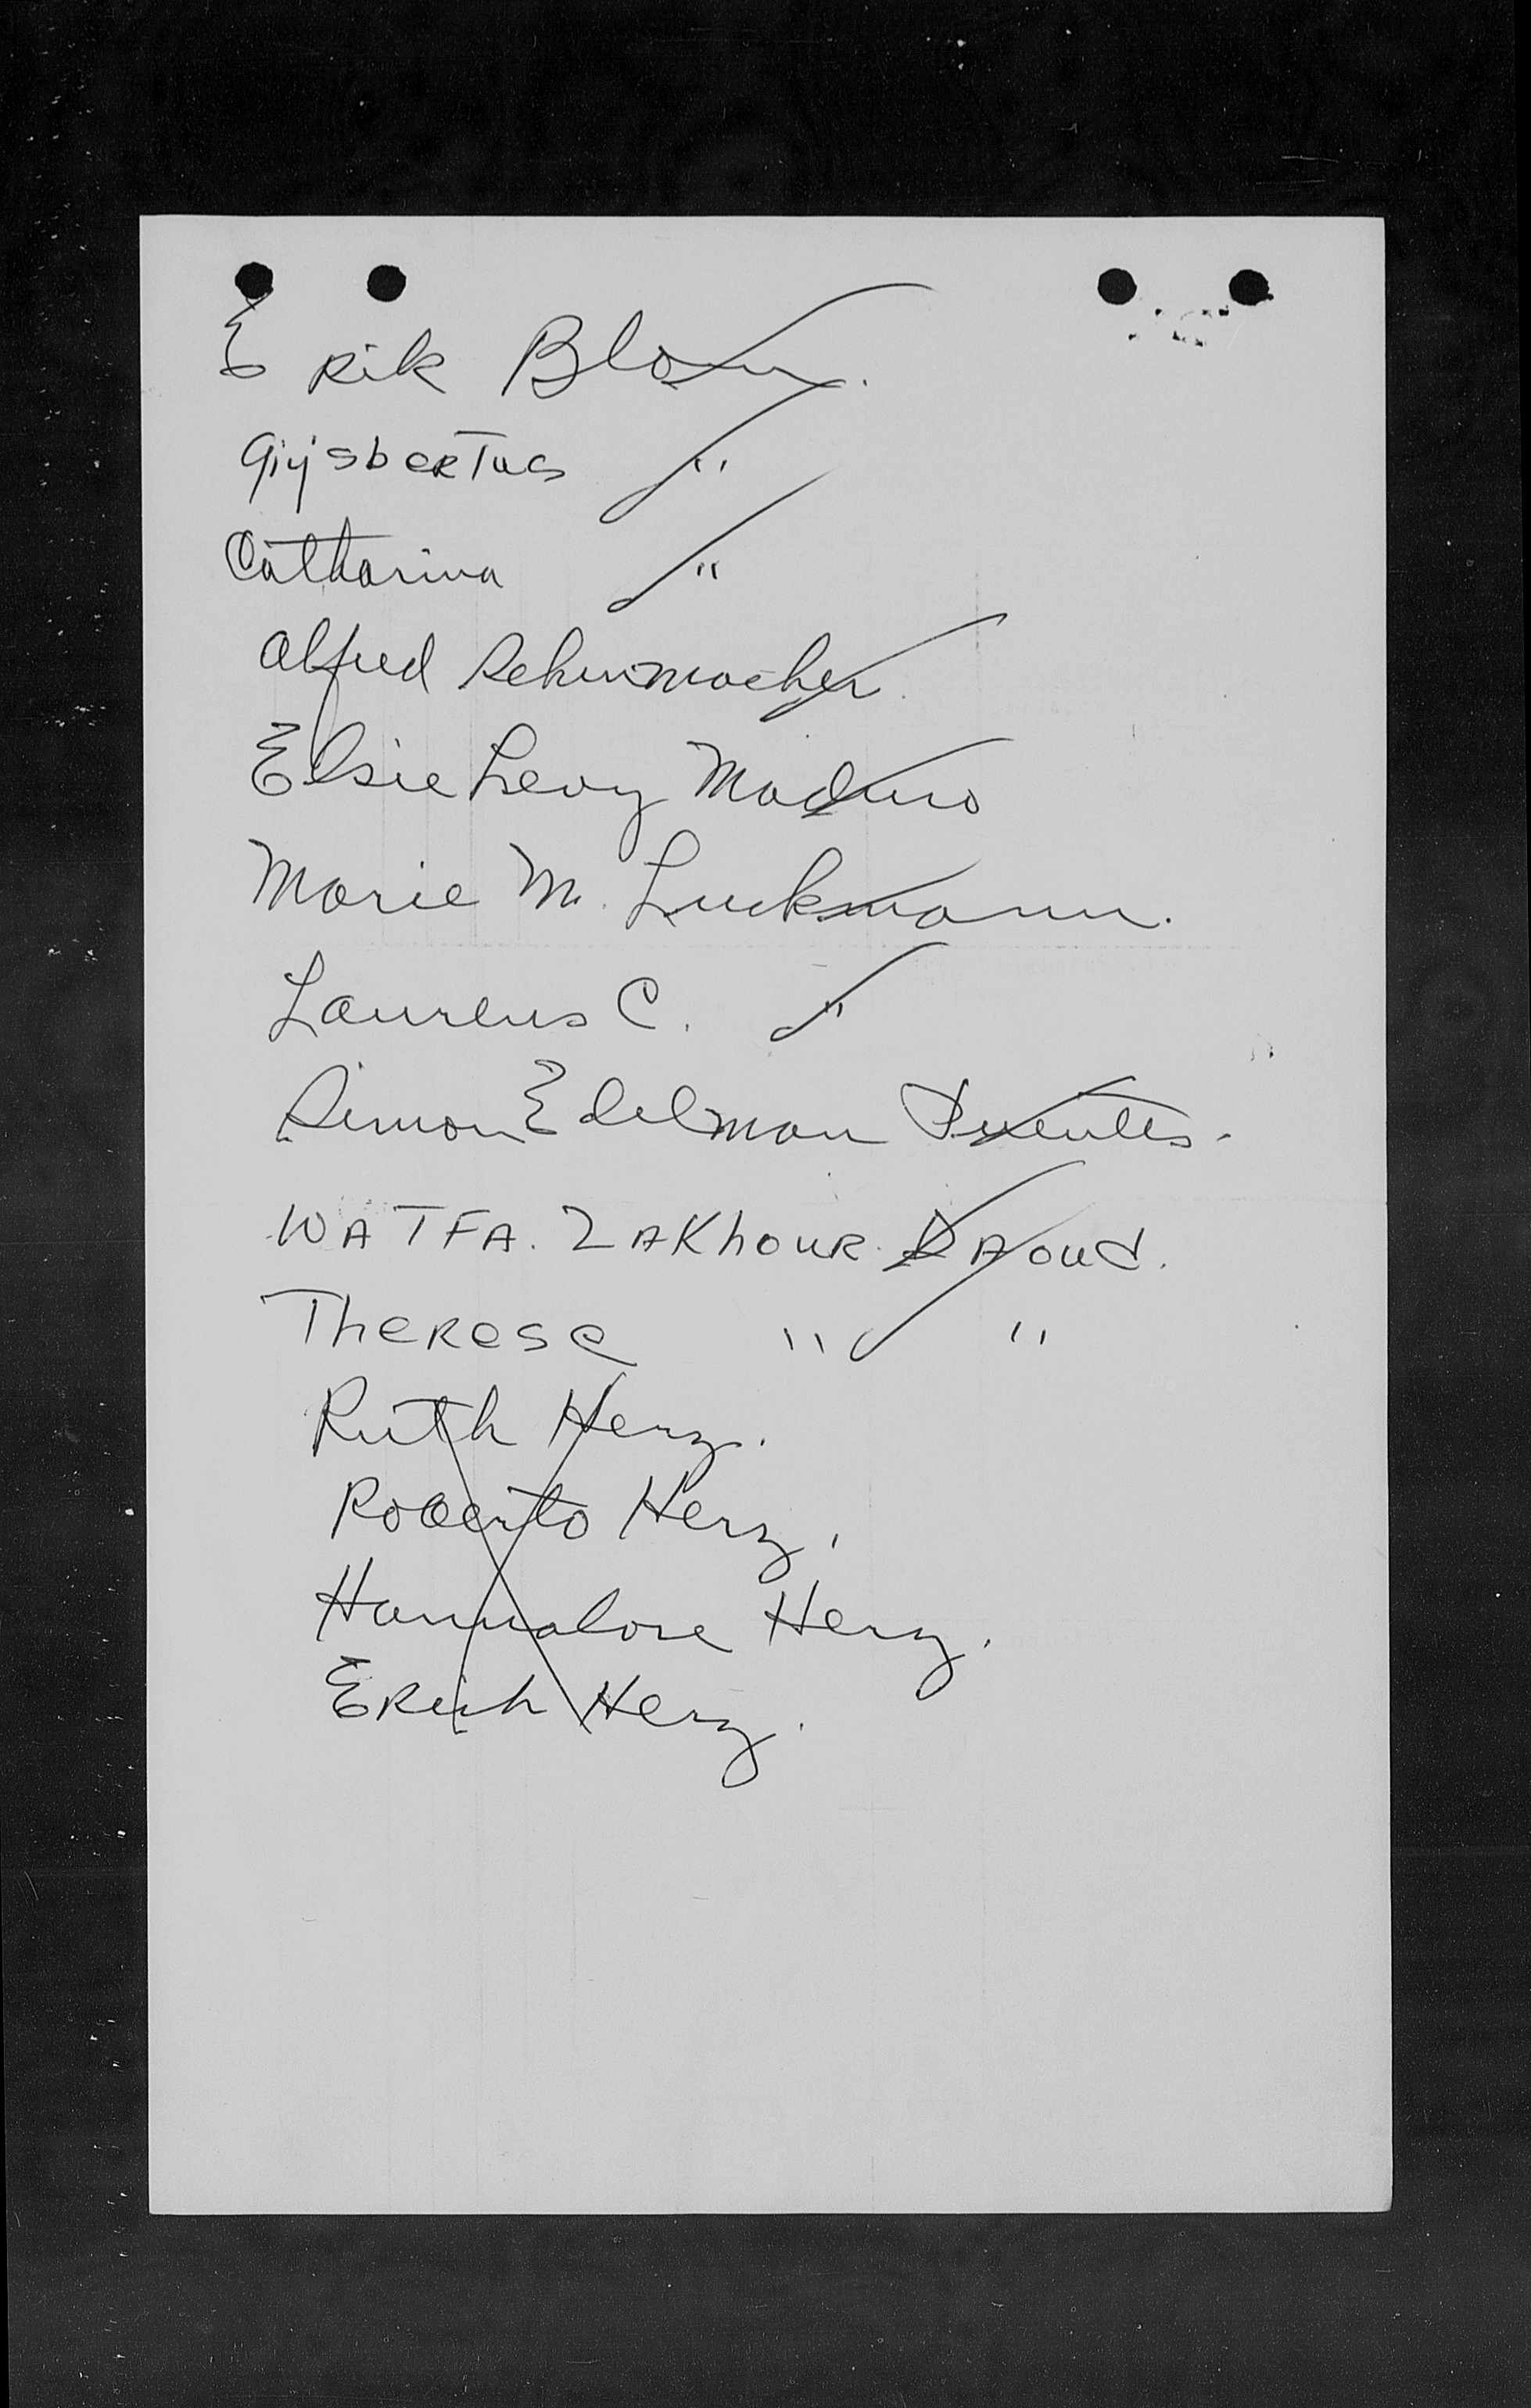 Erik Blom.
Gijsbertus "
Catharina "
Alfred Schuumacher.
Elsie Levy Maduro
Marie M. Luckmann.
Laurens C. "
Simon Edelman Puentes.
WATFA. ZAKhouR. DAoud.
Therese " "
Ruth Herz.
Roberto Herz.
Hannalore Herz.
Erich Herz.